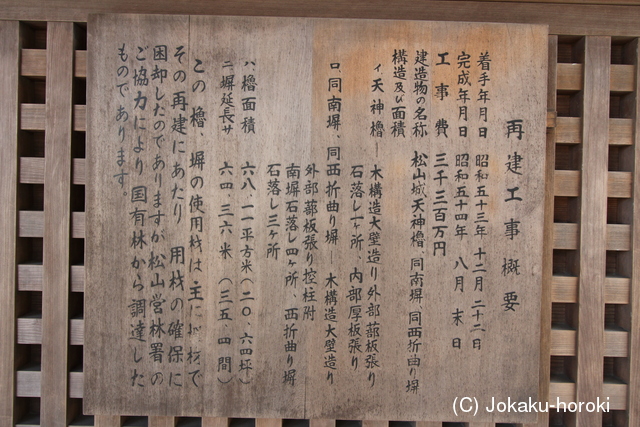 再建工事概要
着手年月日 昭和五十三年 十二月 二十二日
完成年月日 昭和五十四年 八月 末日
工事費 三千三百万円
建造物の名称 松山城天神櫓、同南塀、同西折曲り塀
構造及び面積
イ、天神櫓― 木構造大壁造り外部蔀板張り
石落し一ヶ所、内部厚板張り
ロ、同南塀、同西折曲り塀― 木構造大壁造り
外部蔀板張り控柱附
南塀石落し四ヶ所、西折曲り塀
石落し三ヶ所
ハ、櫓面積 六八・一一平方米(二〇・六四坪)
ニ、塀延長サ 六四・三六米 (三五・四間)
この櫓、塀の使用材は主に材で、
その再建にあたり 用材の確保に
困却したのでありますが松山営林署の
ご協力により国有林から調達した
ものであります。
(C) Jokaku-horoki